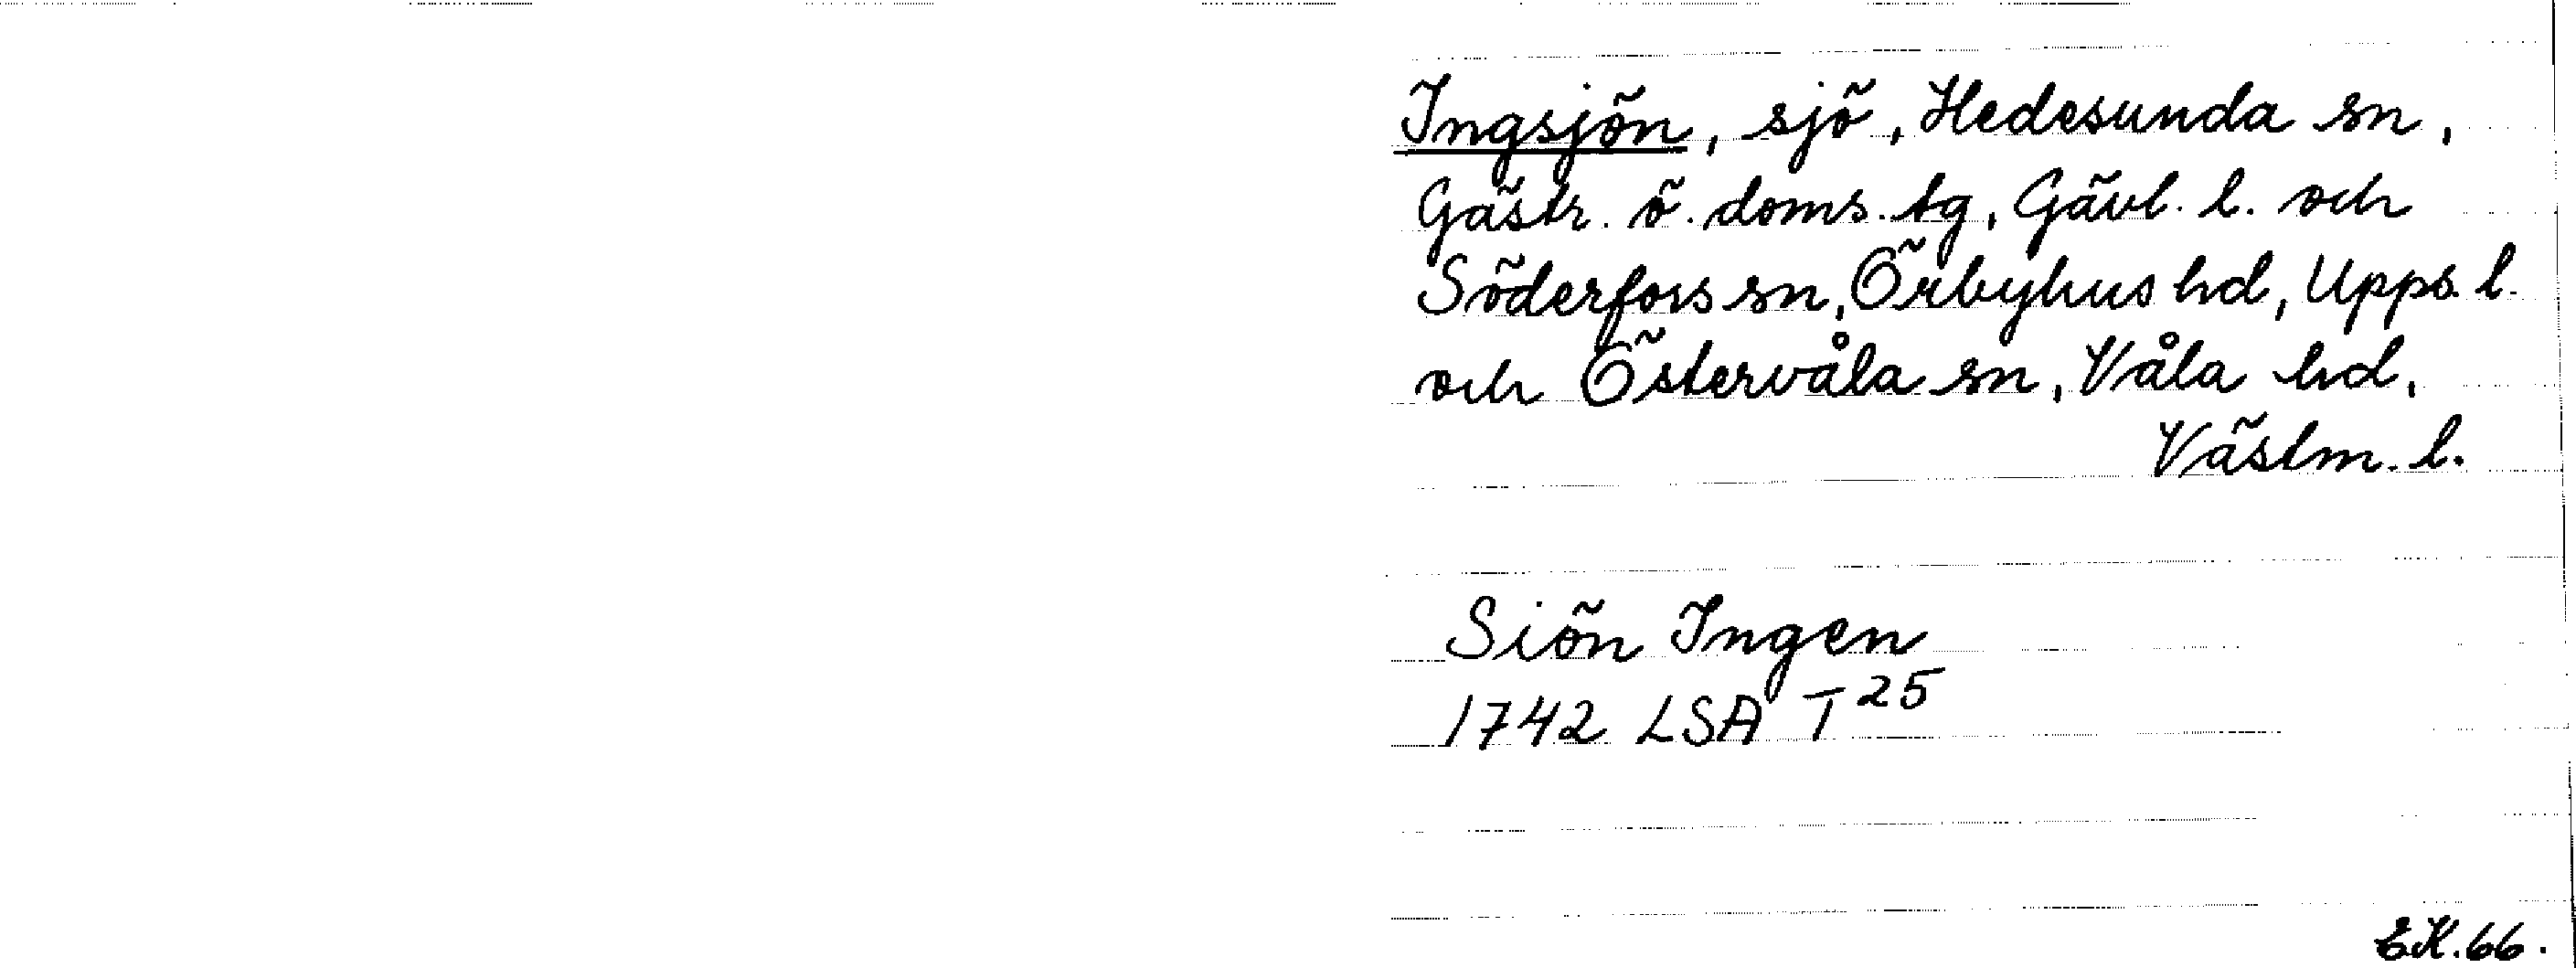 Ingsjön, sjö, Hedesunda sn,
Gästr. ö. doms. tg, Gävl. l. och
Söderfors sn, Örbyhus hd, Upps. l.
och Östervåla sn, Våla hd,
Västm. l.
Siön Ingen
1742 LSA T 25
EK. 66.